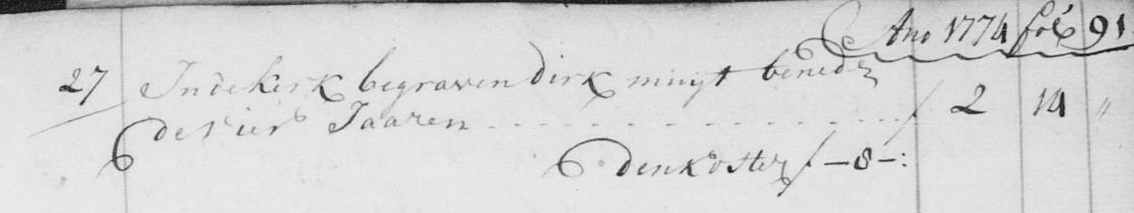 Ano 1774 fol 91
27 In de kerk begraven dirk muijt beneden
de vier Jaaren - - - - - - - - - - f 2 14 "
den koster f - 8 - :